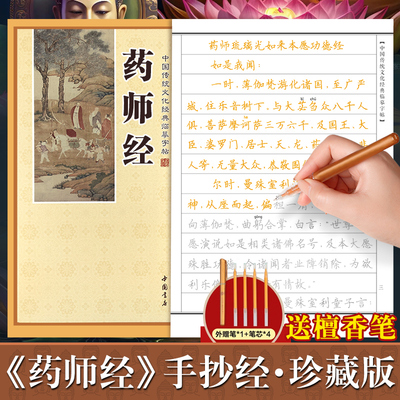 中国传统文化经典临摹字帖
药师经
中国书店
【中国传统文化经典临摹字帖】
药师琉璃光如来本愿功德经
如是我闻：
一时，薄伽梵游化诸国，至广严
城，住乐音树下，与大苾刍众八千人
俱，菩萨摩诃萨三万六千，及国王、大
臣、婆罗门、居士、天、龙、药
人等，无量大众，恭敬围
尔时，曼殊室利
神，从座而起，偏袒一
向薄伽梵，曲躬合掌，白言：“世尊
愿演说如是相类诸佛名号，及本大愿
殊胜功
令诸闻者业障销除，为欲
利乐
曼殊室利童子言：
三
外赠笔*1+笔芯*4
送檀香笔
《药师经》手抄经·珍藏版